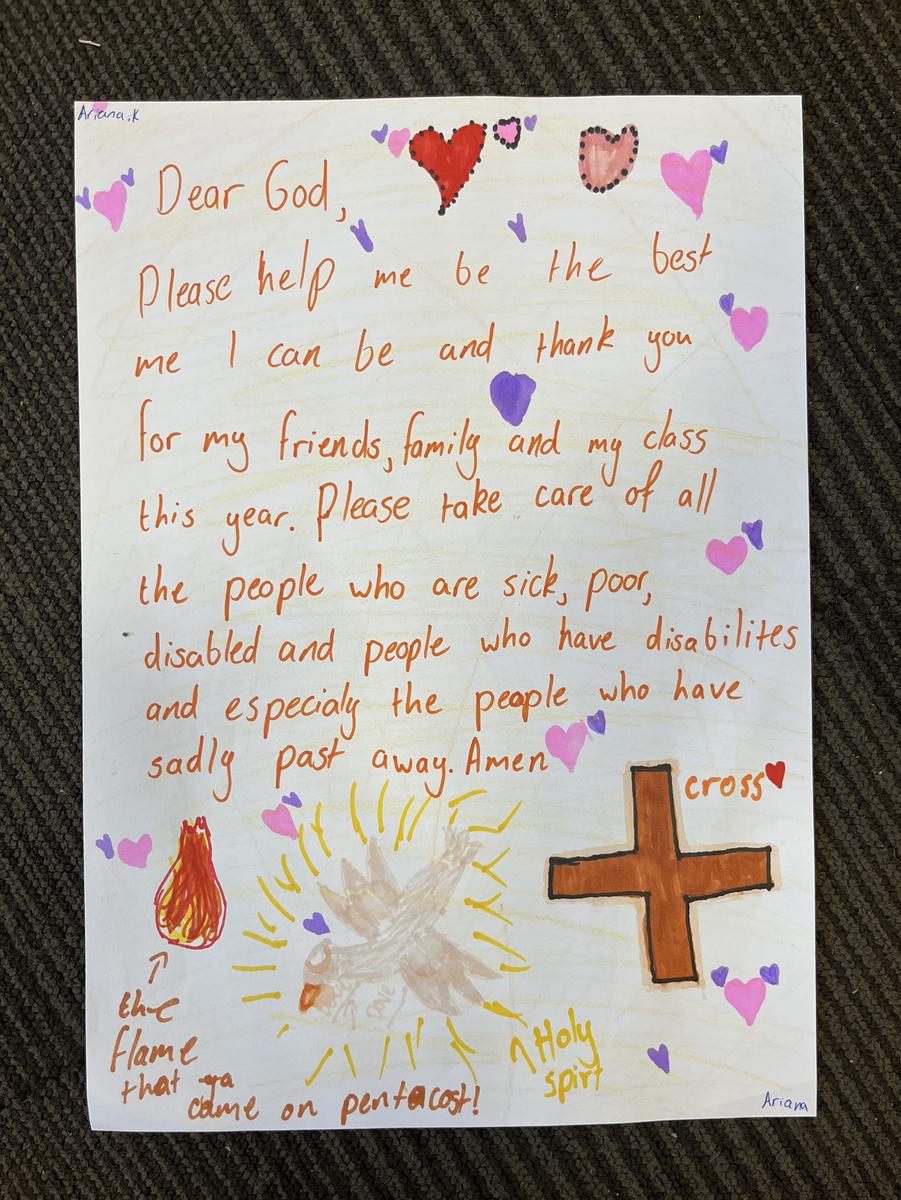 Ariana.K
Dear God,
Please help me be the best
me I can be and thank you
for my friends, family and my class
this year. Please take care of all
the people who are sick, poor,
disabled and people who have disabilites
and especialy the people who have
sadly past away. Amen
cross
the
flame
that
came on pentacost!
Holy
spirt
Ariana